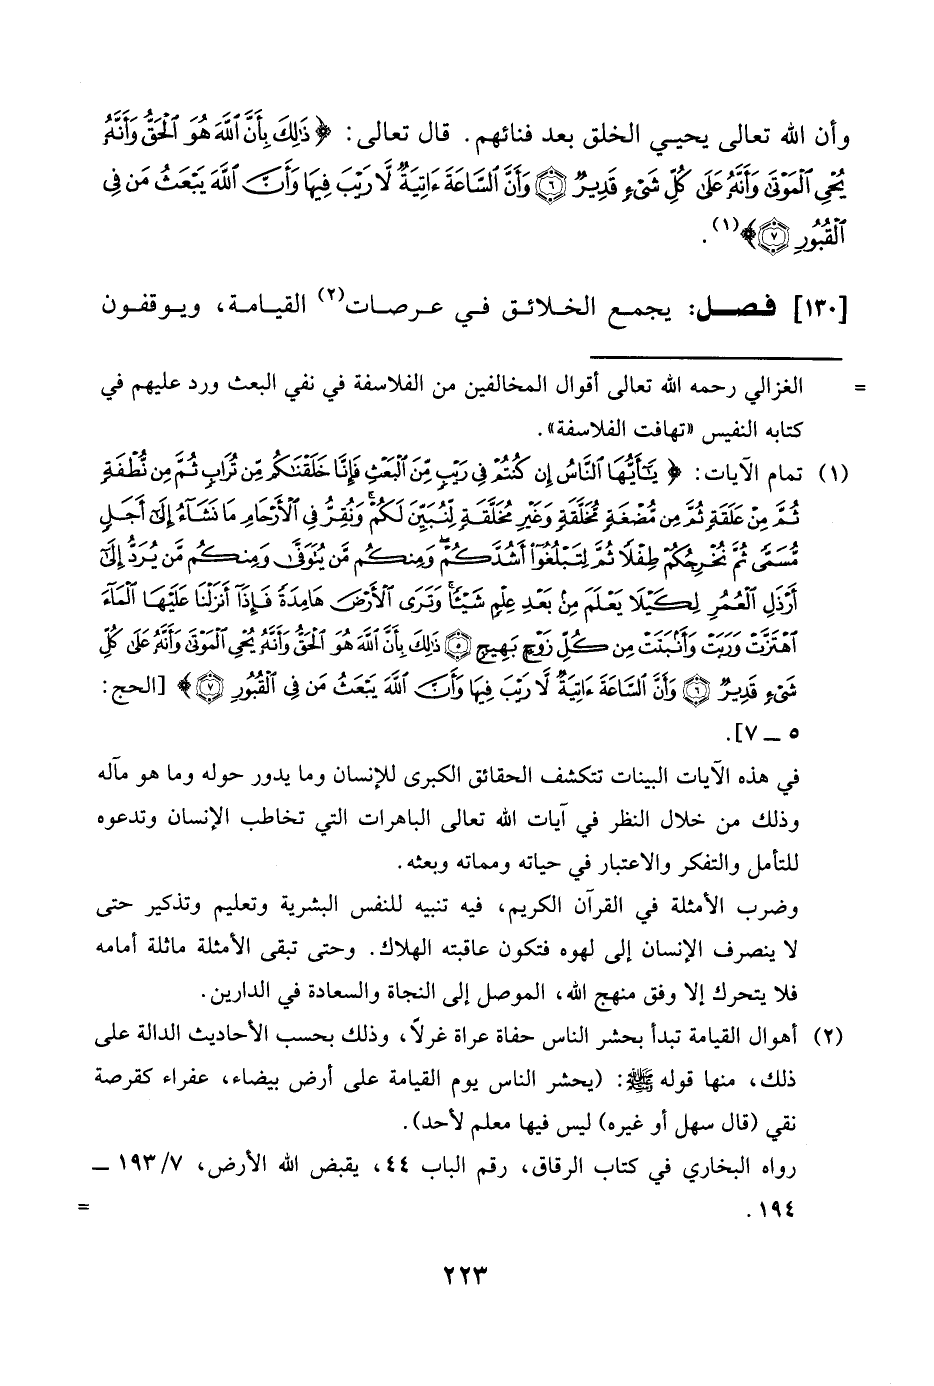 وأن الله تعالى يحيي الخلق بعد فنائهم. قال تعالى: ﴿ ذَٰلِكَ بِأَنَّ ٱللَّهَ هُوَ ٱلْحَقُّ وَأَنَّهُۥ
يُحْىِ ٱلْمَوْتَىٰ وَأَنَّهُۥ عَلَىٰ كُلِّ شَىْءٍ قَدِيرٌ ۝٦ وَأَنَّ ٱلسَّاعَةَ ءَاتِيَةٌ لَّا رَيْبَ فِيهَا وَأَنَّ ٱللَّهَ يَبْعَثُ مَن فِى
ٱلْقُبُورِ ۝٧ ﴾(١).
[١٣٠] فصل: يجمع الخلائق في عرصات(٢) القيامة، ويوقفون
= الغزالي رحمه الله تعالى أقوال المخالفين من الفلاسفة في نفي البعث ورد عليهم في
كتابه النفيس «تهافت الفلاسفة».
(١) تمام الآيات: ﴿ يَـٰٓأَيُّهَا ٱلنَّاسُ إِن كُنتُمْ فِى رَيْبٍ مِّنَ ٱلْبَعْثِ فَإِنَّا خَلَقْنَـٰكُم مِّن تُرَابٍ ثُمَّ مِن نُّطْفَةٍ
ثُمَّ مِنْ عَلَقَةٍ ثُمَّ مِن مُّضْغَةٍ مُّخَلَّقَةٍ وَغَيْرِ مُخَلَّقَةٍ لِّنُبَيِّنَ لَكُمْ ۚ وَنُقِرُّ فِى ٱلْأَرْحَامِ مَا نَشَآءُ إِلَىٰٓ أَجَلٍ
مُّسَمًّى ثُمَّ نُخْرِجُكُمْ طِفْلًا ثُمَّ لِتَبْلُغُوٓا۟ أَشُدَّكُمْ ۖ وَمِنكُم مَّن يُتَوَفَّىٰ وَمِنكُم مَّن يُرَدُّ إِلَىٰٓ
أَرْذَلِ ٱلْعُمُرِ لِكَيْلَا يَعْلَمَ مِنۢ بَعْدِ عِلْمٍ شَيْـًٔا ۚ وَتَرَى ٱلْأَرْضَ هَامِدَةً فَإِذَآ أَنزَلْنَا عَلَيْهَا ٱلْمَآءَ
ٱهْتَزَّتْ وَرَبَتْ وَأَنۢبَتَتْ مِن كُلِّ زَوْجٍۭ بَهِيجٍ ۝٥ ذَٰلِكَ بِأَنَّ ٱللَّهَ هُوَ ٱلْحَقُّ وَأَنَّهُۥ يُحْىِ ٱلْمَوْتَىٰ وَأَنَّهُۥ عَلَىٰ كُلِّ
شَىْءٍ قَدِيرٌ ۝٦ وَأَنَّ ٱلسَّاعَةَ ءَاتِيَةٌ لَّا رَيْبَ فِيهَا وَأَنَّ ٱللَّهَ يَبْعَثُ مَن فِى ٱلْقُبُورِ ۝٧ ﴾ [الحج:
٥ ــ ٧].
في هذه الآيات البينات تتكشف الحقائق الكبرى للإنسان وما يدور حوله وما هو مآله
وذلك من خلال النظر في آيات الله تعالى الباهرات التي تخاطب الإنسان وتدعوه
للتأمل والتفكر والاعتبار في حياته ومماته وبعثه.
وضرب الأمثلة في القرآن الكريم، فيه تنبيه للنفس البشرية وتعليم وتذكير حتى
لا ينصرف الإنسان إلى لهوه فتكون عاقبته الهلاك. وحتى تبقى الأمثلة ماثلة أمامه
فلا يتحرك إلا وفق منهج الله، الموصل إلى النجاة والسعادة في الدارين.
(٢) أهوال القيامة تبدأ بحشر الناس حفاة عراة غرلاً، وذلك بحسب الأحاديث الدالة على
ذلك، منها قوله ﷺ: (يحشر الناس يوم القيامة على أرض بيضاء، عفراء كقرصة
نقي (قال سهل أو غيره) ليس فيها معلم لأحد).
رواه البخاري في كتاب الرقاق، رقم الباب ٤٤، يقبض الله الأرض، ٧/ ١٩٣ ــ
١٩٤. =
٢٢٣